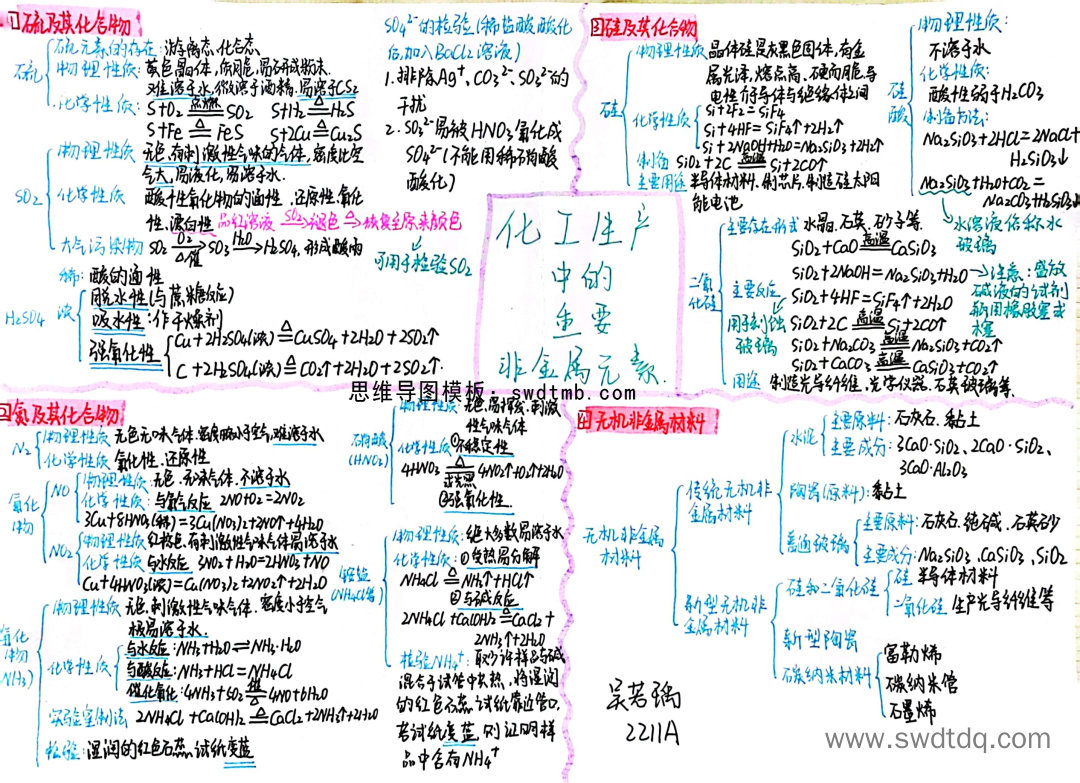 ①硫及其化合物
硫
硫元素的存在：游离态、化合态
物理性质：黄色晶体，质脆，易研成粉末.
难溶于水，微溶于酒精，易溶于CS2
化学性质：S+O2 点燃 SO2 S+H2 △ H2S
S+Fe △ FeS S+2Cu △ Cu2S
SO2
物理性质 无色，有刺激性气味的气体，密度比空
气大，易液化，易溶于水.
化学性质 酸性氧化物的通性、还原性、氧化
性、漂白性 品红溶液 SO2→褪色 △→恢复至原来颜色
可用于检验SO2
大气污染物 SO2 O2 △催 SO3 H2O→H2SO4，形成酸雨
H2SO4
稀：酸的通性
浓
脱水性(与蔗糖反应)
吸水性：作干燥剂
强氧化性
Cu+2H2SO4(浓) △ CuSO4+2H2O+2SO2↑
C+2H2SO4(浓) △ CO2↑+2H2O+2SO2↑
SO4²⁻的检验(稀盐酸酸化
后加入BaCl2溶液)
1. 排除Ag⁺、CO3²⁻、SO3²⁻的
干扰
2. SO3²⁻易被HNO3氧化成
SO4²⁻(不能用稀硝酸
酸化)
②硅及其化合物
硅
物理性质 晶体硅是灰黑色固体，有金
属光泽，熔点高、硬而脆，导
电性介于导体与绝缘体之间
化学性质
Si+2F2=SiF4
Si+4HF=SiF4↑+2H2↑
Si+2NaOH+H2O=Na2SiO3+2H2↑
制备 SiO2+2C 高温 Si+2CO↑
主要用途 半导体材料，制芯片，制造硅太阳
能电池
硅酸
物理性质：
不溶于水
化学性质：
酸性弱于H2CO3
制备方法：
Na2SiO3+2HCl=2NaCl+
H2SiO3↓
Na2SiO3+H2O+CO2=
Na2CO3+H2SiO3↓
水溶液俗称水
玻璃
二氧化硅
主要存在形式 水晶、石英、砂子等.
主要反应
SiO2+CaO 高温 CaSiO3
SiO2+2NaOH=Na2SiO3+H2O→注意：盛放
碱液的试剂
瓶用橡胶塞或
木塞
SiO2+4HF=SiF4↑+2H2O
用于刻蚀
玻璃
SiO2+2C 高温 Si+2CO↑
SiO2+Na2CO3 高温 Na2SiO3+CO2↑
SiO2+CaCO3 高温 CaSiO3+CO2↑
用途 制造光导纤维，光学仪器、石英玻璃等.
化工生产
中的
重要
非金属元素.
思维导图模板：swdtmb.com
氮及其化合物
N2
物理性质 无色无味气体，密度略小于空气，难溶于水
化学性质 氧化性、还原性
氧化物
NO
物理性质：无色、无味气体，不溶于水
化学性质：与氧气反应 2NO+O2=2NO2
3Cu+8HNO3(稀)=3Cu(NO3)2+2NO↑+4H2O
NO2
物理性质 红棕色有刺激性气味气体易溶于水
化学性质 与水反应 3NO2+H2O=2HNO3+NO
Cu+4HNO3(浓)=Cu(NO3)2+2NO2↑+2H2O
氢化物(NH3)
物理性质 无色，刺激性气味气体，密度小于空气
极易溶于水.
化学性质
与水反应：NH3+H2O⇌NH3·H2O
与酸反应：NH3+HCl=NH4Cl
催化氧化：4NH3+5O2 4NO+6H2O
实验室制法 2NH4Cl+Ca(OH)2 △ CaCl2+2NH3↑+2H2O
检验：湿润的红色石蕊试纸变蓝
硝酸
(HNO3)
物理性质：无色，易挥发，刺激
性气味气体
化学性质 ①不稳定性
4HNO3 △ 或光照 4NO2↑+O2↑+2H2O
②强氧化性
铵盐
(NH4Cl等)
物理性质：绝大多数易溶于水
化学性质：①受热易分解
NH4Cl △ NH3↑+HCl↑
②与碱反应
2NH4Cl+Ca(OH)2 △ CaCl2+
2NH3↑+2H2O
检验NH4⁺：取少许样品与碱
混合于试管中共热，将湿润
的红色石蕊试纸靠近管口，
若试纸变蓝，则证明样
品中含有NH4⁺
④无机非金属材料
无机非金属
材料
传统无机非
金属材料
水泥
主要原料：石灰石、黏土
主要成分：3CaO·SiO2、2CaO·SiO2、
3CaO·Al2O3
陶瓷(原料)：黏土
普通玻璃
主要原料：石灰石、纯碱、石英砂
主要成分：Na2SiO3、CaSiO3、SiO2
新型无机非
金属材料
硅和二氧化硅
硅 半导体材料
二氧化硅 生产光导纤维等
新型陶瓷
碳纳米材料
富勒烯
碳纳米管
石墨烯
吴若瑀
2211A
www.swdtdq.com